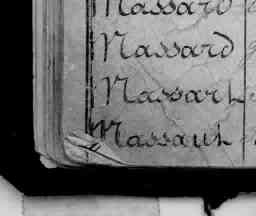 Massard
Massard
Massart
Massaut